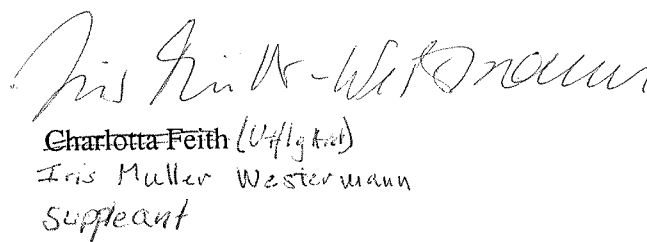 Iris Müller-Westermann
Charlotta Feith
Iris Muller Westermann
Suppleant